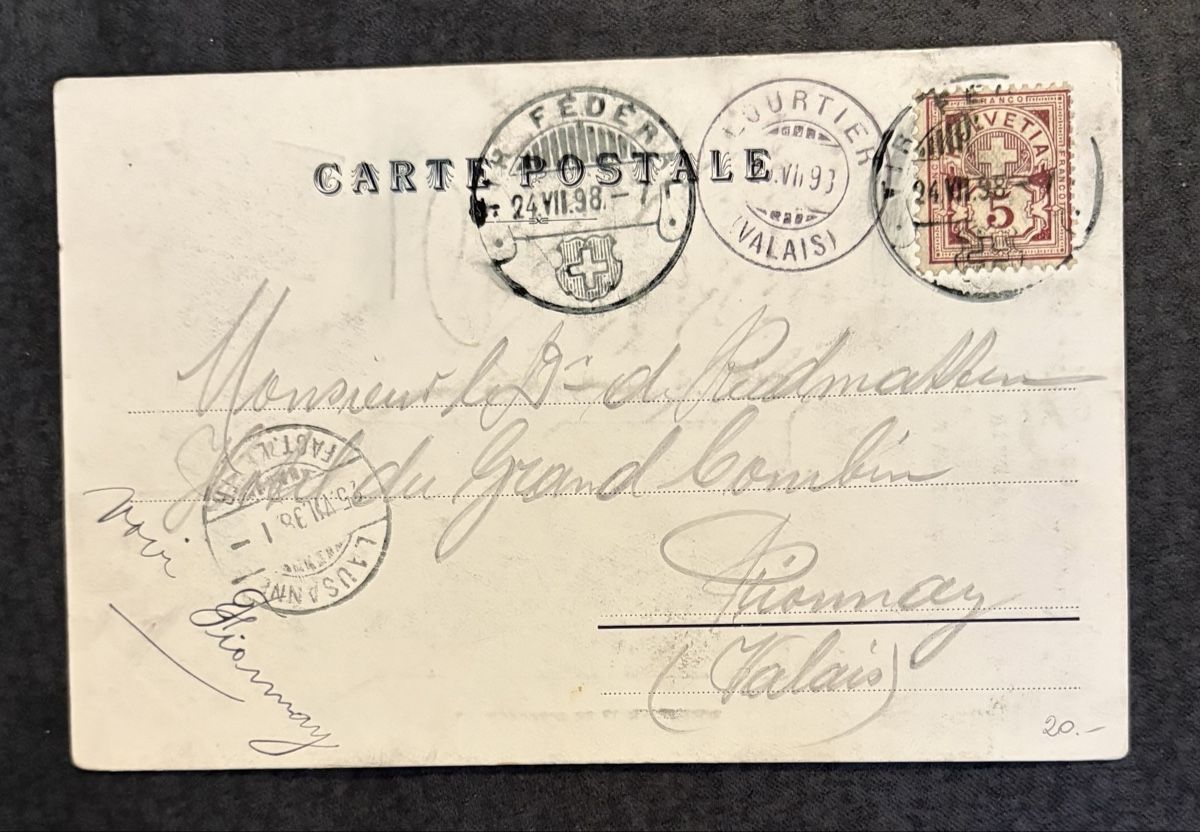 CARTE POSTALE
TIR FÉDÉR
24.VII.98.–1
LOURTIER
VII 93
(VALAIS)
TIR FÉ
24.VII.98.–1
FRANCO
HELVETIA
FRANCO
5
Monsieur le Dr. de Riedmatten
Hôtel du Grand Combin
Fionnay
(Valais)
LAUSANNE
25.VII.98.
FACT. L
voir
Fionnay
20.–